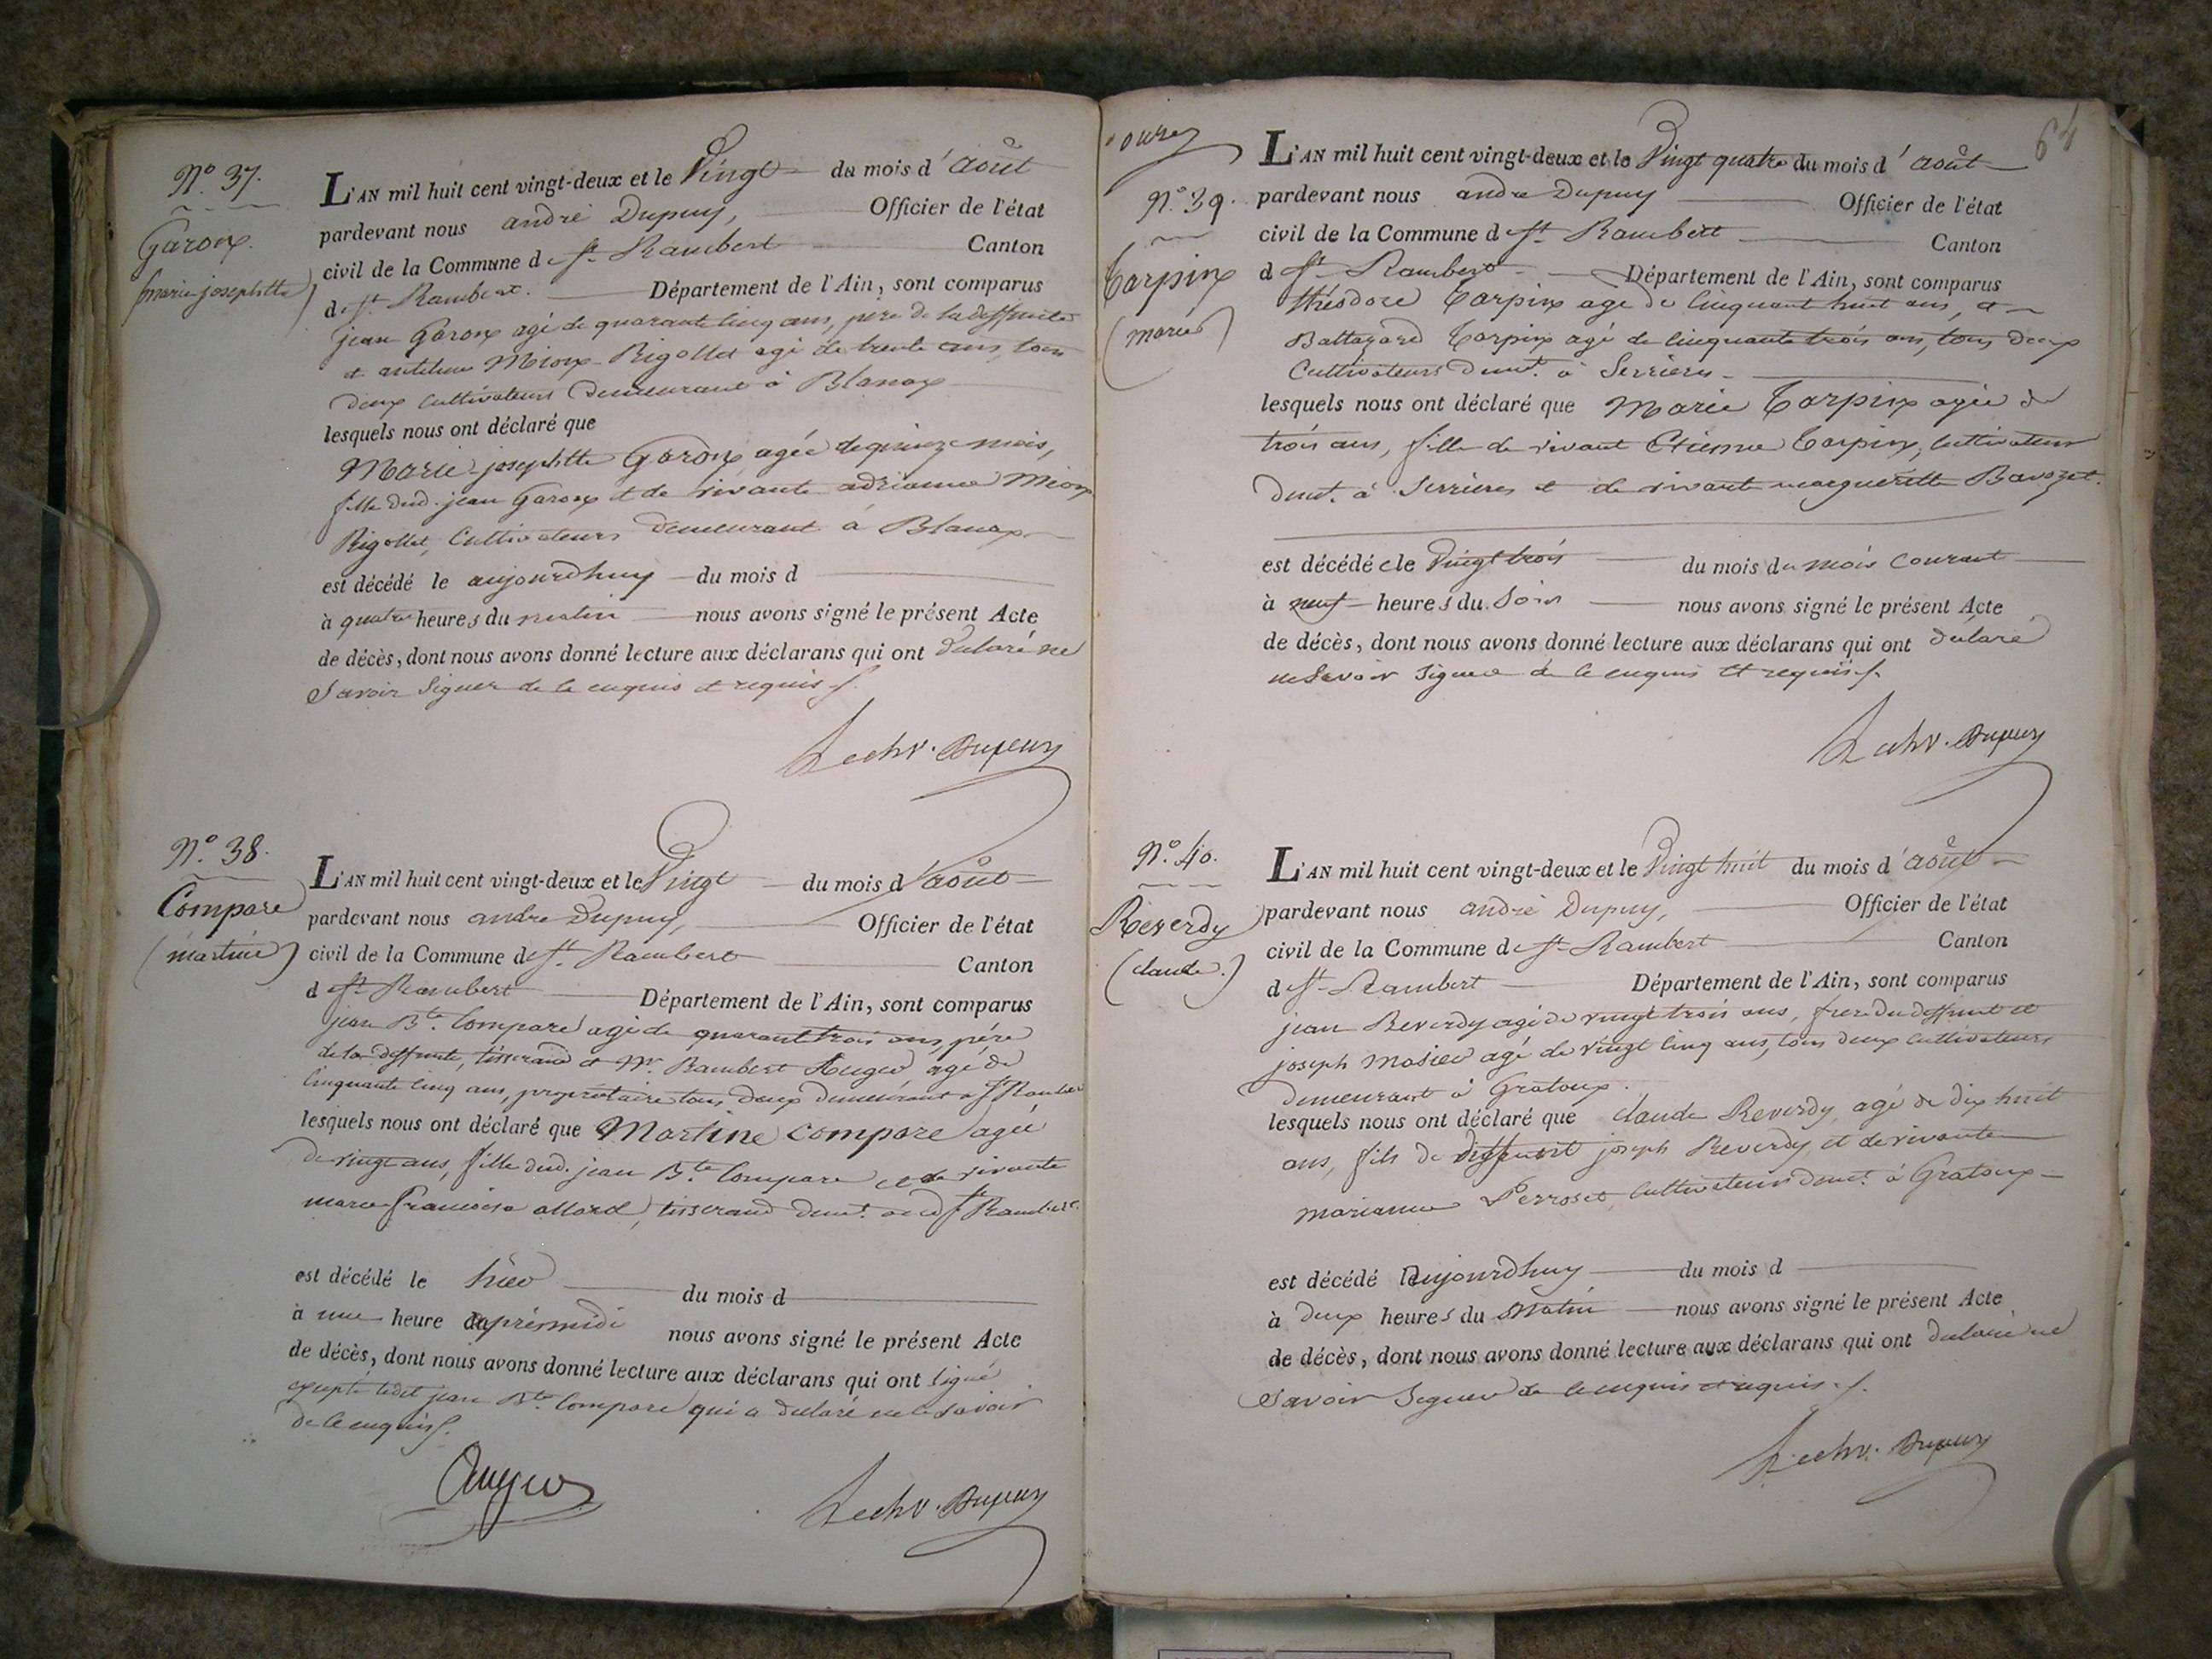 N.º 37.
Garoux
(marie josephitte)
L'AN mil huit cent vingt-deux et le Vingt du mois d'août
pardevant nous andré Dupuy, Officier de l'état
civil de la Commune d St. Rambert Canton
d St. Rambert. Département de l'Ain, sont comparus
jean Garoux agé de quarante cinq ans, père de la deffunte
et antelme Mioux-Rigollet agé de trente ans, tous
deux cultivateurs demeurant à Blanax
lesquels nous ont déclaré que
Marie-josephitte Garoux, agée de quinze mois,
fille dud. jean Garoux et de vivante adrianne Mioux
Rigollet, Cultivateurs demeurant à Blanax
est décédé le aujourdhuy du mois d
à quatre heures du matin nous avons signé le présent Acte
de décès, dont nous avons donné lecture aux déclarans qui ont déclaré ne
Savoir Signer de ce enquis et requis.
Dupuy
N.º 38.
Compare
(martine)
L'AN mil huit cent vingt-deux et le Vingt du mois d'août
pardevant nous andré Dupuy, Officier de l'état
civil de la Commune d St. Rambert Canton
d St. Rambert Département de l'Ain, sont comparus
jean Bte. Compare agé de quarant trois ans, père
de la deffunte, tisserand et Mr. Rambert Auger agé de
Cinquante cinq ans, propriétaire tous deux demeurant a St Rambert
lesquels nous ont déclaré que Martine compare agée
de vingt ans, fille dud. jean Bte. Compare et de vivante
marie françoise allard, tisserand demt. aud St Rambert
est décédé le hier du mois d
à une heure daprésmidi nous avons signé le présent Acte
de décès, dont nous avons donné lecture aux déclarans qui ont signé
excepté ledit jean Bte. Compare qui a déclaré ne le savoir
de ce enquis.
Auger
Dupuy
64
N.º 39.
Carpin
(marie)
L'AN mil huit cent vingt-deux et le Vingt quatre du mois d'août
pardevant nous andré Dupuy Officier de l'état
civil de la Commune d St. Rambert Canton
d St. Rambert Département de l'Ain, sont comparus
théodore Carpin agé de Cinquant huit ans, et
Baltazard Carpin agé de cinquante trois ans, tous deux
Cultivateurs demt. à Serrières
lesquels nous ont déclaré que Marie Carpin agée de
trois ans, fille de vivant Etienne Carpin, cultivateur
demt. à Serrieres et de vivante margueritte Bavozet.
est décédée le Vingt trois du mois du mois courant
à neuf heures du Soir nous avons signé le présent Acte
de décès, dont nous avons donné lecture aux déclarans qui ont déclaré
ne Savoir Signer de ce enquis et requis.
Dupuy
N.º 40.
Reverdy
(claude.)
L'AN mil huit cent vingt-deux et le Vingt huit du mois d'août
pardevant nous andré Dupuy, Officier de l'état
civil de la Commune d St. Rambert Canton
d St. Rambert Département de l'Ain, sont comparus
jean Reverdy agé de vingt trois ans, frere du deffunt et
joseph Masieu agé de vingt cinq ans, tous deux cultivateurs
demeurant à Gratoux.
lesquels nous ont déclaré que claude Reverdy, agé de dix huit
ans, fils de deffunt joseph Reverdy et de vivante
marianne Perroset cultivateurs demt. à Gratoux
est décédé aujourdhuy du mois d
à deux heures du Matin nous avons signé le présent Acte
de décès, dont nous avons donné lecture aux déclarans qui ont déclaré ne
Savoir Signer de ce enquis et requis.
Dupuy